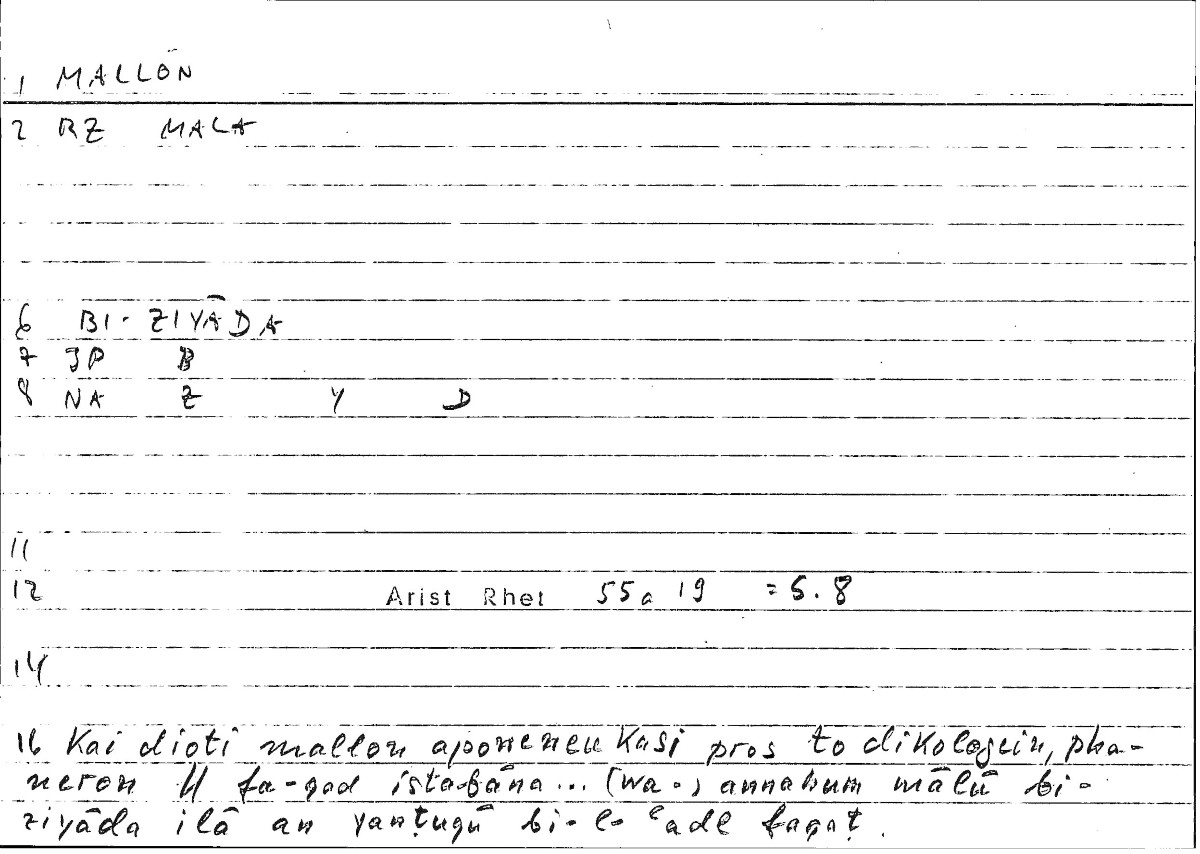 1 MALLŌN
2 RZ MALA
6 BI- ZIYĀDA
7 JP B
8 NA Z Y D
11
12 Arist Rhet 55a 19 = 5.8
14
16 Kai dioti mallon aponeneukasi pros to dikologein, pha-
neron // fa-qad istabāna... (wa-) annahum mālū bi-
ziyāda ilā an yanṭuqū bi-l-ʿadl faqaṭ.